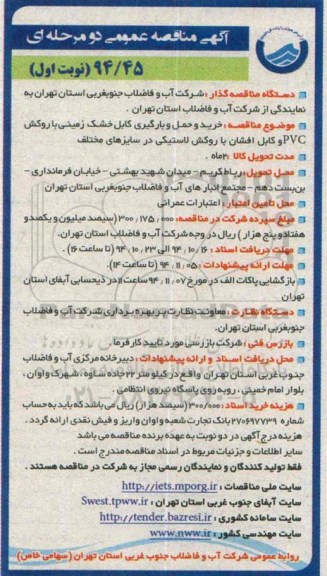 آگهی مناقصه عمومی دو مرحله ای
۹۴/۴۵ (نوبت اول)
دستگاه مناقصه گذار : شرکت آب و فاضلاب جنوبغربی استان تهران به
نمایندگی از شرکت آب و فاضلاب استان تهران .
موضوع مناقصه : خرید و حمل و بارگیری کابل خشک زمینی با روکش
PVC و کابل افشان با روکش لاستیکی در سایزهای مختلف
مدت تحویل کالا : ۲ماه .
محل تحویل : رباط کریم - میدان شهید بهشتی - خیابان فرمانداری -
بن بست دهم - مجتمع انبار های آب و فاضلاب جنوبغربی استان تهران
محل تامین اعتبار : اعتبارات عمرانی
مبلغ سپرده شرکت در مناقصه: ۳۰۰,۱۷۵,۰۰۰ (سیصد میلیون و یکصد و
هفتاد و پنج هزار ) ریال در وجه شرکت آب و فاضلاب استان تهران.
مهلت دریافت اسناد : ۹۴,۱۰,۱۶ الی ۹۴,۱۰,۲۳ (تا ساعت ۱۶) .
مهلت ارائه پیشنهادات : ۹۴,۱۱,۰۵ (تا ساعت ۱۴).
بازگشایی پاکات الف در مورخ ۹۴,۱۱,۰۷ ساعت ۱۱ در ذیحسابی آبفای استان
تهران
دستگاه نظارت : معاونت نظارت بر بهره برداری شرکت آب و فاضلاب
جنوبغربی استان تهران.
بازرس فنی : شرکت بازرسی مورد تایید کارفرما
محل دریافت اسناد و ارائه پیشنهادات : دبیرخانه مرکزی آب و فاضلاب
جنوب غربی استان تهران واقع در کیلومتر ۲۲ جاده ساوه ، شهرک واوان ،
بلوار امام خمینی ، رو به روی پاسگاه نیروی انتظامی .
هزینه خرید اسناد : ۳۰۰/۰۰۰ (سیصد هزار) ریال می باشد که باید به حساب
شماره ۲۷۰۶۹۷۷۳۹ بانک تجارت شعبه واوان واریز و فیش نقدی ارائه گردد .
هزینه درج آگهی در دو نوبت به عهده برنده مناقصه می باشد
سایر اطلاعات و جزئیات مربوط در اسناد مناقصه مندرج است .
فقط تولید کنندگان و نمایندگان رسمی مجاز به شرکت در مناقصه هستند .
سایت ملی مناقصات : http://iets.mporg.ir
سایت آبفای جنوب غربی استان تهران : Swest.tpww.ir
سایت سامانه کشوری : http://tender.bazresi.ir
سایت مهندسی کشور : www.nww.ir
روابط عمومی شرکت آب و فاضلاب جنوب غربی استان تهران (سهامی خاص)